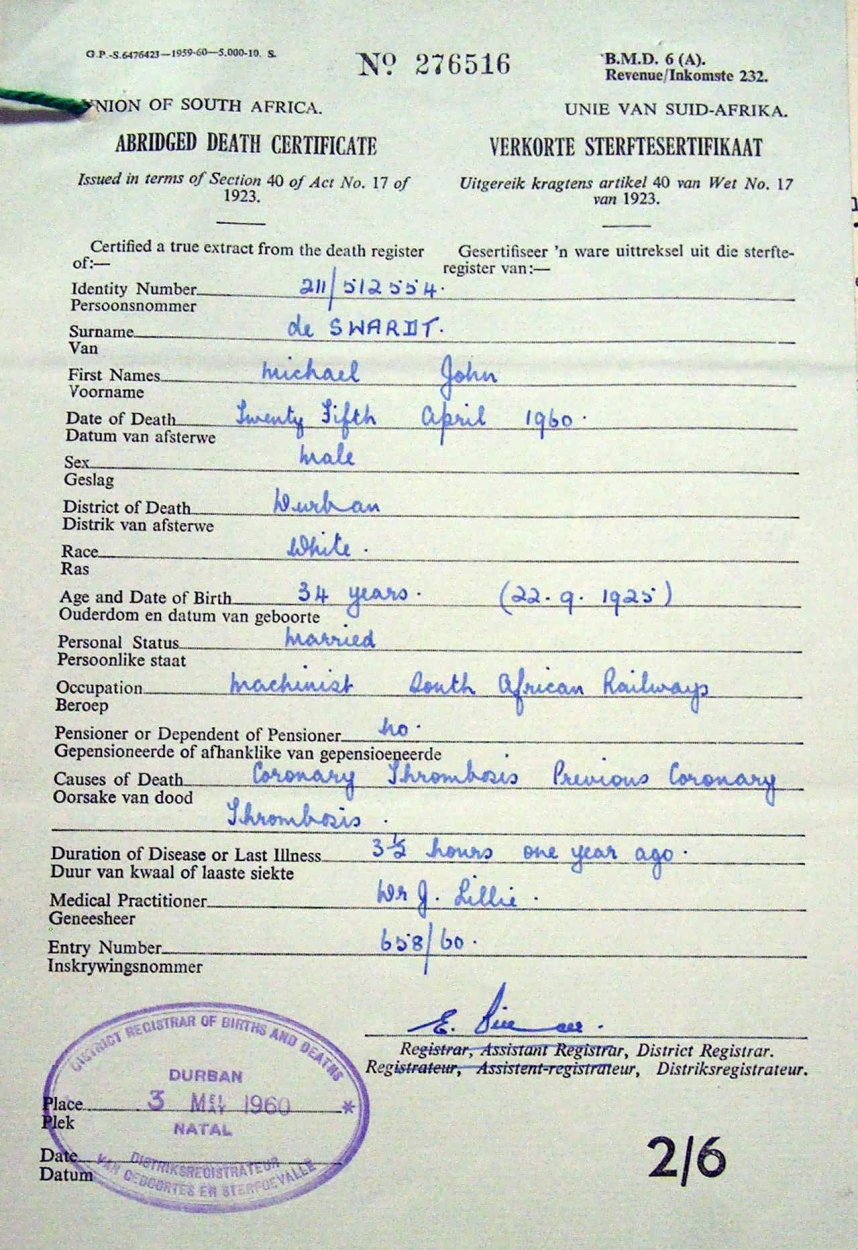 G.P.-S.6476423—1959-60—5,000-10. S.
No 276516
B.M.D. 6 (A).
Revenue/Inkomste 232.
UNION OF SOUTH AFRICA.
UNIE VAN SUID-AFRIKA.
ABRIDGED DEATH CERTIFICATE
VERKORTE STERFTESERTIFIKAAT
Issued in terms of Section 40 of Act No. 17 of
1923.
Uitgereik kragtens artikel 40 van Wet No. 17
van 1923.
Certified a true extract from the death register
of:—
Gesertifiseer 'n ware uittreksel uit die sterfte-
register van:—
Identity Number 211/512554.
Persoonsnommer
Surname de SWARDT.
Van
First Names Michael John
Voorname
Date of Death Twenty Fifth April 1960.
Datum van afsterwe
Sex Male
Geslag
District of Death Durban
Distrik van afsterwe
Race White.
Ras
Age and Date of Birth 34 years. (22.9.1925)
Ouderdom en datum van geboorte
Personal Status Married
Persoonlike staat
Occupation Machinist South African Railways
Beroep
Pensioner or Dependent of Pensioner No.
Gepensioneerde of afhanklike van gepensioeneerde
Causes of Death Coronary Thrombosis Previous Coronary
Oorsake van dood
Thrombosis.
Duration of Disease or Last Illness 3½ hours one year ago.
Duur van kwaal of laaste siekte
Medical Practitioner Dr J. Lillie.
Geneesheer
Entry Number 658/60.
Inskrywingsnommer
E.
Registrar, Assistant Registrar, District Registrar.
Registrateur, Assistent-registrateur, Distriksregistrateur.
DISTRICT REGISTRAR OF BIRTHS AND DEATHS
DURBAN
Place 3 MEI MAY 1960 *
Plek
NATAL
Date
Datum
DISTRIKSREGISTRATEUR
VAN GEBOORTES EN STERFGEVALLE
2/6